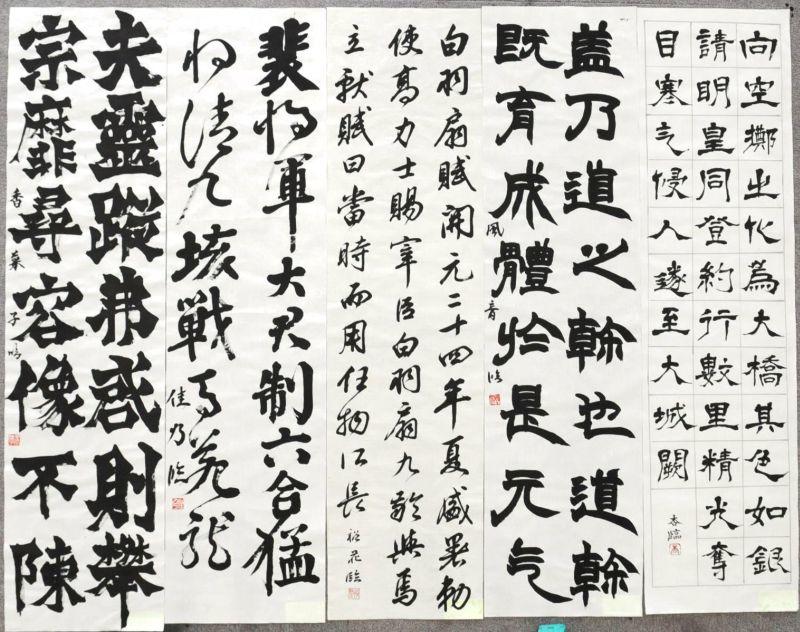 向空擲之化為大橋其色如銀
請明皇同登約行數里精光奪
目寒气侵人遂至大城闕
臨
盖乃道之幹也道幹
既育成體於是元气
風音臨
白羽扇賦開元二十四年夏盛暑勅
使高力士賜宰臣白羽扇九齡與焉
立獻賦曰當時而用任物所長
花臨
裴将軍大君制六合猛
将清九垓戰馬若龍
佳乃臨
夫靈蹤弗惑則攀
宗靡尋容像不陳